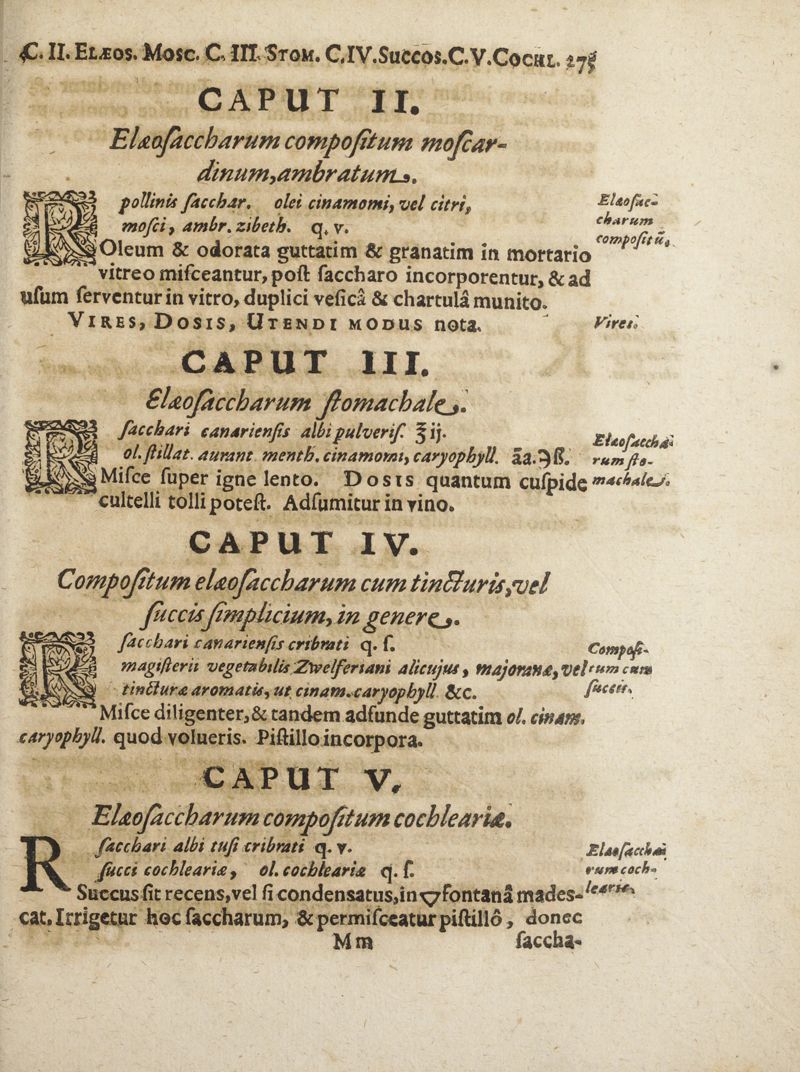 C. II. ELÆOS. MOSC. C. III. STOM. C.IV.SUCCOS.C.V.COCHL. 275
CAPUT II.
Elæoſaccharum compoſitum moſcar-
dinum,ambratum.
R pollinis ſacchar. olei cinamomi, vel citri,
moſci, ambr. zibeth. q. v.
Elæoſac-
charum
compoſitũ.
Oleum & odorata guttatim & granatim in mortario
vitreo miſceantur, poſt ſaccharo incorporentur, & ad
uſum ſerventur in vitro, duplici veſicâ & chartulâ munito.
VIRES, DOSIS, UTENDI MODUS nota.
Vires.
CAPUT III.
Elæoſaccharum ſtomachale.
R ſacchari canarienſis albi pulveriſ. ℥ij.
ol. ſtillat. aurant. menth. cinamomi, caryophyll. āā.℈ß.
Elæoſaccha-
rum ſto-
machale.
Miſce ſuper igne lento. DOSIS quantum cuſpide
cultelli tolli poteſt. Adſumitur in vino.
CAPUT IV.
Compoſitum elæoſaccharum cum tincturis,vel
ſuccis ſimplicium, in genere.
R ſacchari canarienſis cribrati q. ſ.
magiſterii vegetabilis Zwelferiani alicujus, majoranæ, vel
tincturæ aromatis, ut cinam. caryophyll. &c.
Compoſi-
tum cum
ſuccis.
Miſce diligenter, & tandem adfunde guttatim ol. cinam.
caryophyll. quod volueris. Piſtillo incorpora.
CAPUT V.
Elæoſaccharum compoſitum cochleariæ.
R ſacchari albi tuſi cribrati q. v.
ſucci cochleariæ, ol. cochleariæ q. ſ.
Elæoſaccha-
rum coch-
leariæ.
Succus ſit recens, vel ſi condensatus, in 🜄 fontanâ mades-
cat. Irrigetur hoc ſaccharum, & permiſceatur piſtillô, donec
Mm ſaccha-